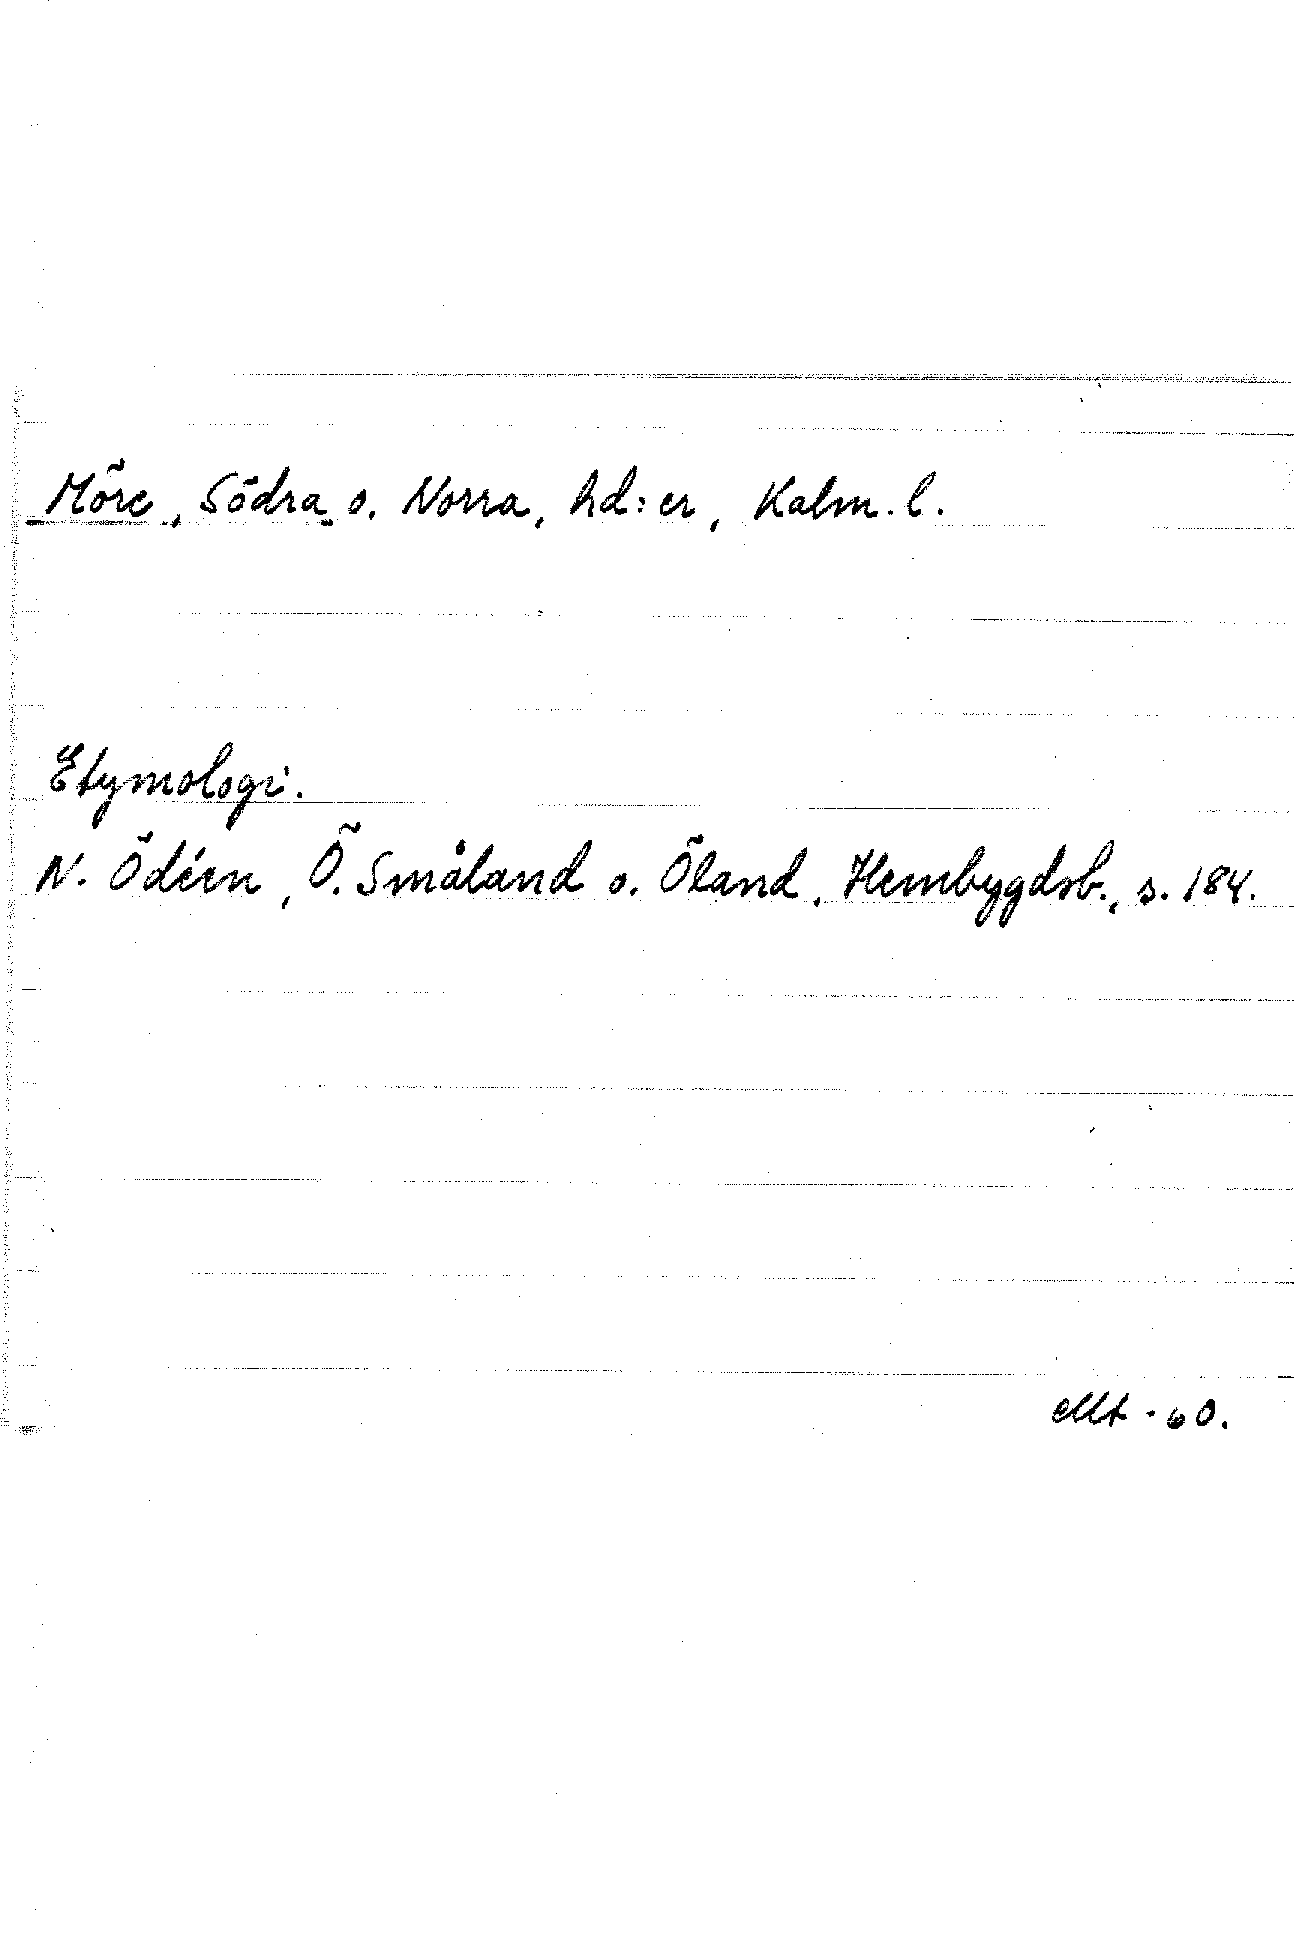 Möre, Södra o. Norra, hd:er, Kalm. l.
Etymologi.
N. Ödéen, Ö. Småland o. Öland, Hembygdsb., s. 184.
Mt -60.